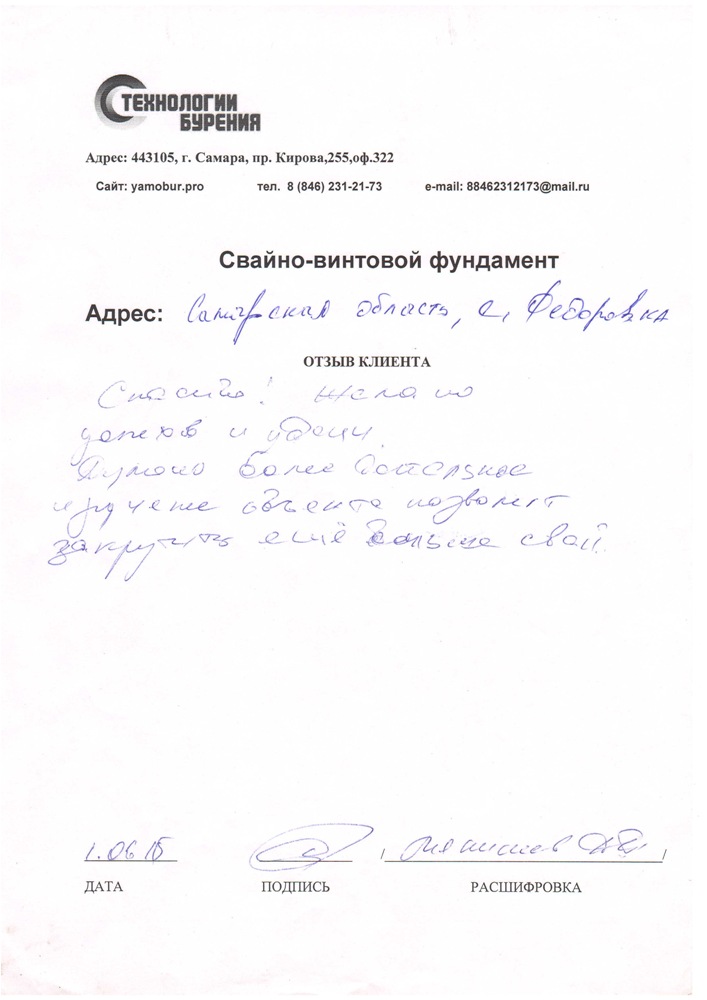 ТЕХНОЛОГИИ
БУРЕНИЯ
Адрес: 443105, г. Самара, пр. Кирова,255,оф.322
Сайт: yamobur.pro тел. 8 (846) 231-21-73 e-mail: 88462312173@mail.ru
Свайно-винтовой фундамент
Адрес: Самарская область, с. Федоровка
ОТЗЫВ КЛИЕНТА
Спасибо! Желаю
успехов и удачи.
Думаю более детальное
изучение объекта позволит
закрутить ещё больше свай.
1.06 15
ДАТА ПОДПИСЬ РАСШИФРОВКА